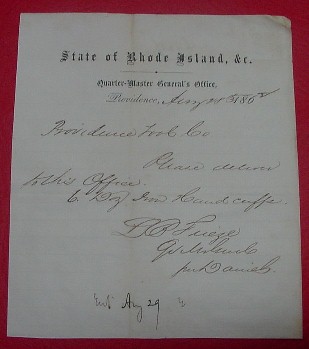 State of Rhode Island, &c.
Quarter-Master General's Office,
Providence, Aug 28 1862
Providence Tool Co
Please deliver
to this Office
6 Doz Iron Hand cuffs
Frieze
per Daniels
Ent Aug 29